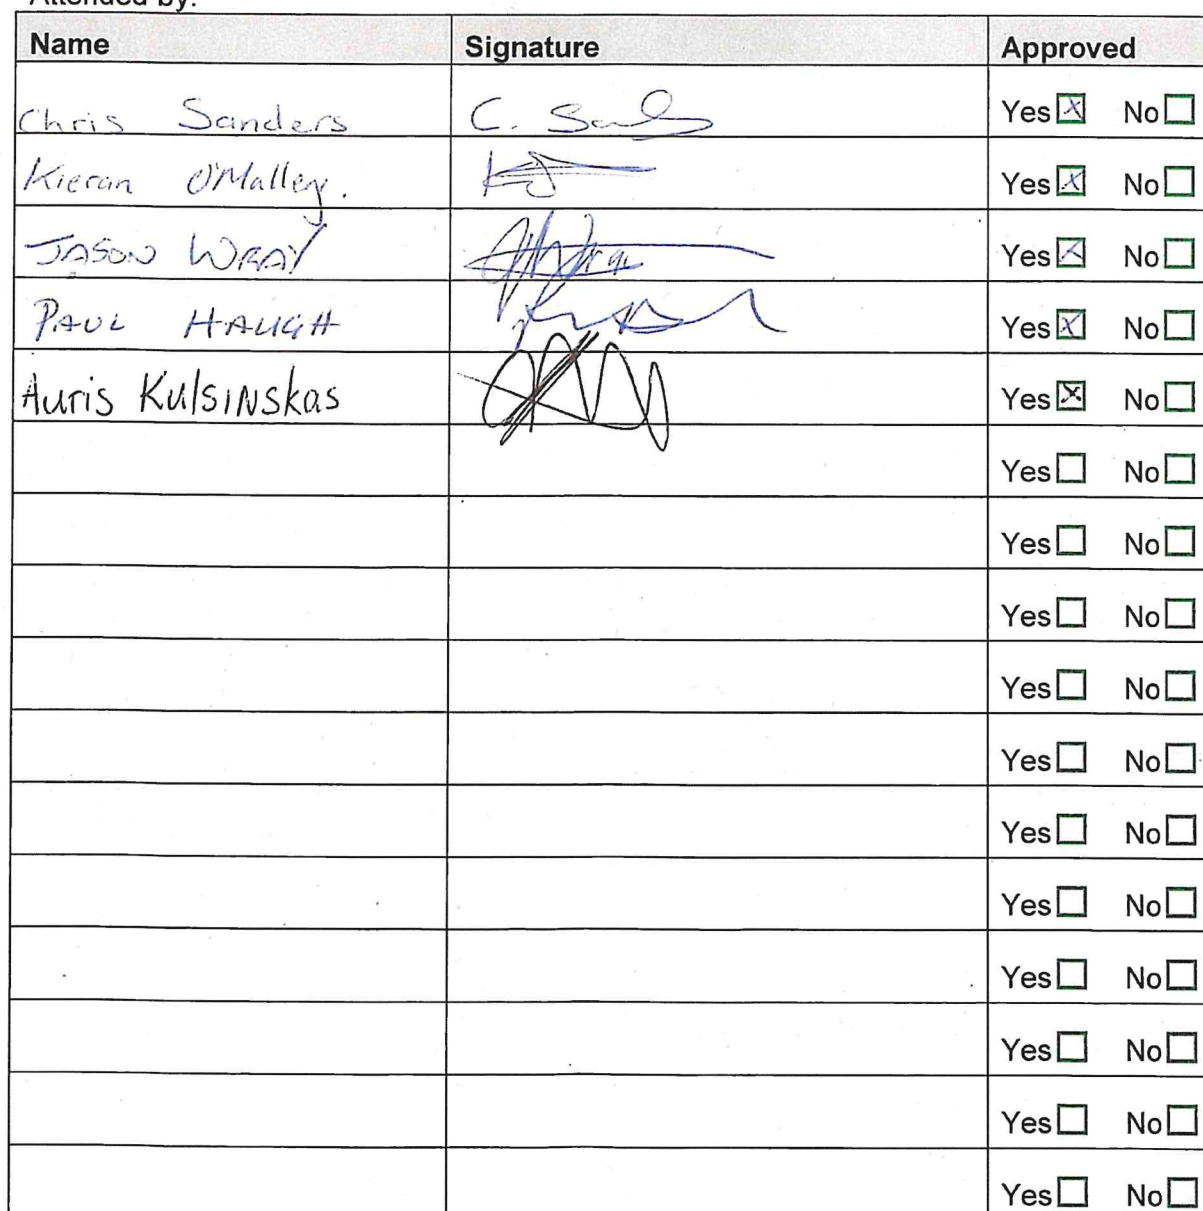 Attended by:
Name Signature Approved
Chris Sanders C. Sands Yes☒ No☐
Kieran O'Malley. Yes☒ No☐
JASON WRAY Yes☒ No☐
PAUL HAUGH Yes☒ No☐
Auris KulsiNskas Yes☒ No☐
Yes☐ No☐
Yes☐ No☐
Yes☐ No☐
Yes☐ No☐
Yes☐ No☐
Yes☐ No☐
Yes☐ No☐
Yes☐ No☐
Yes☐ No☐
Yes☐ No☐
Yes☐ No☐